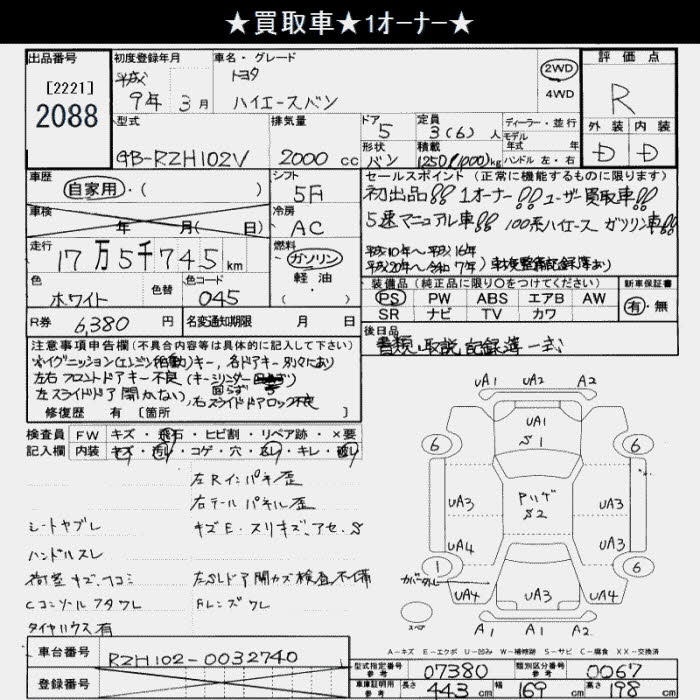 ★買取車★1オーナー★
出品番号
[2221]
2088
初度登録年月
平成
9年 3月
車名・グレード
トヨタ
ハイエースバン
2WD
4WD
評価点
R
外装 内装
D D
型式
GB-RZH102V
排気量
2000 cc
ドア
5
形状
バン
定員
3(6)人
積載
1250(1000)kg
ディーラー・並行
モデル
年式 年
ハンドル 左・右
車歴
自家用・( )
シフト
5F
車検
年 月( 日)
冷房
AC
走行
17万5千745 km
燃料
ガソリン
軽油
( )
色
ホワイト
色替
色コード
045
R券
6,380 円
名変通知期限 月 日
セールスポイント(正常に機能するものに限ります)
初出品!! 1オーナー!! ユーザー買取車!!
5速マニュアル車!! 100系ハイエース ガソリン車!!
平成10年~平成16年
平成20年~令和7年) 車検整備記録簿あり
装備品(純正品に限り〇をつけてください)
PS PW ABS エアB AW
SR ナビ TV カワ
新車保証書
有・無
後日品
書類・取説 記録簿 一式
注意事項申告欄(不具合内容等は具体的に記入して下さい)
※イグニッション(エンジン始動)キー、各ドアキー別々にあり
左右フロントドアキー不良(キーシリンダー回らず)
左スライドドア開かない)、右スライドドアロック不良
修復歴 有 [箇所 ]
検査員
記入欄
FW キズ・飛石・ヒビ割・リペア跡・×要
内装 キズ・汚レ・コゲ・穴・スレ・キレ・破レ
左Rインパネ歪
右テールパネル歪
シートヤブレ
キズE・スリキズ、アセ、S
ハンドルスレ
荷室キズ、ヘコミ
左SLドア開カズ検査不備
Cコンソールフタワレ
FLンズワレ
タイヤハウス有
UA1 UA2 A1
UA1
S1
6 6
UA3
Pハゲ
S2
UA3
UA4
UA3
1 6
カバータルミ
UA4
UA3
UA4
スペア
UA1 A1 A2
A-キズ E-エクボ U-凹み W-補修跡 S-サビ C-腐食 XX-交換済
車台番号
RZH102-0032740
登録番号
型式指定番号
参考
07380
類別区分番号
参考
0067
車庫証明用
参考
長さ 443 cm 幅 169 cm 高さ 198 cm